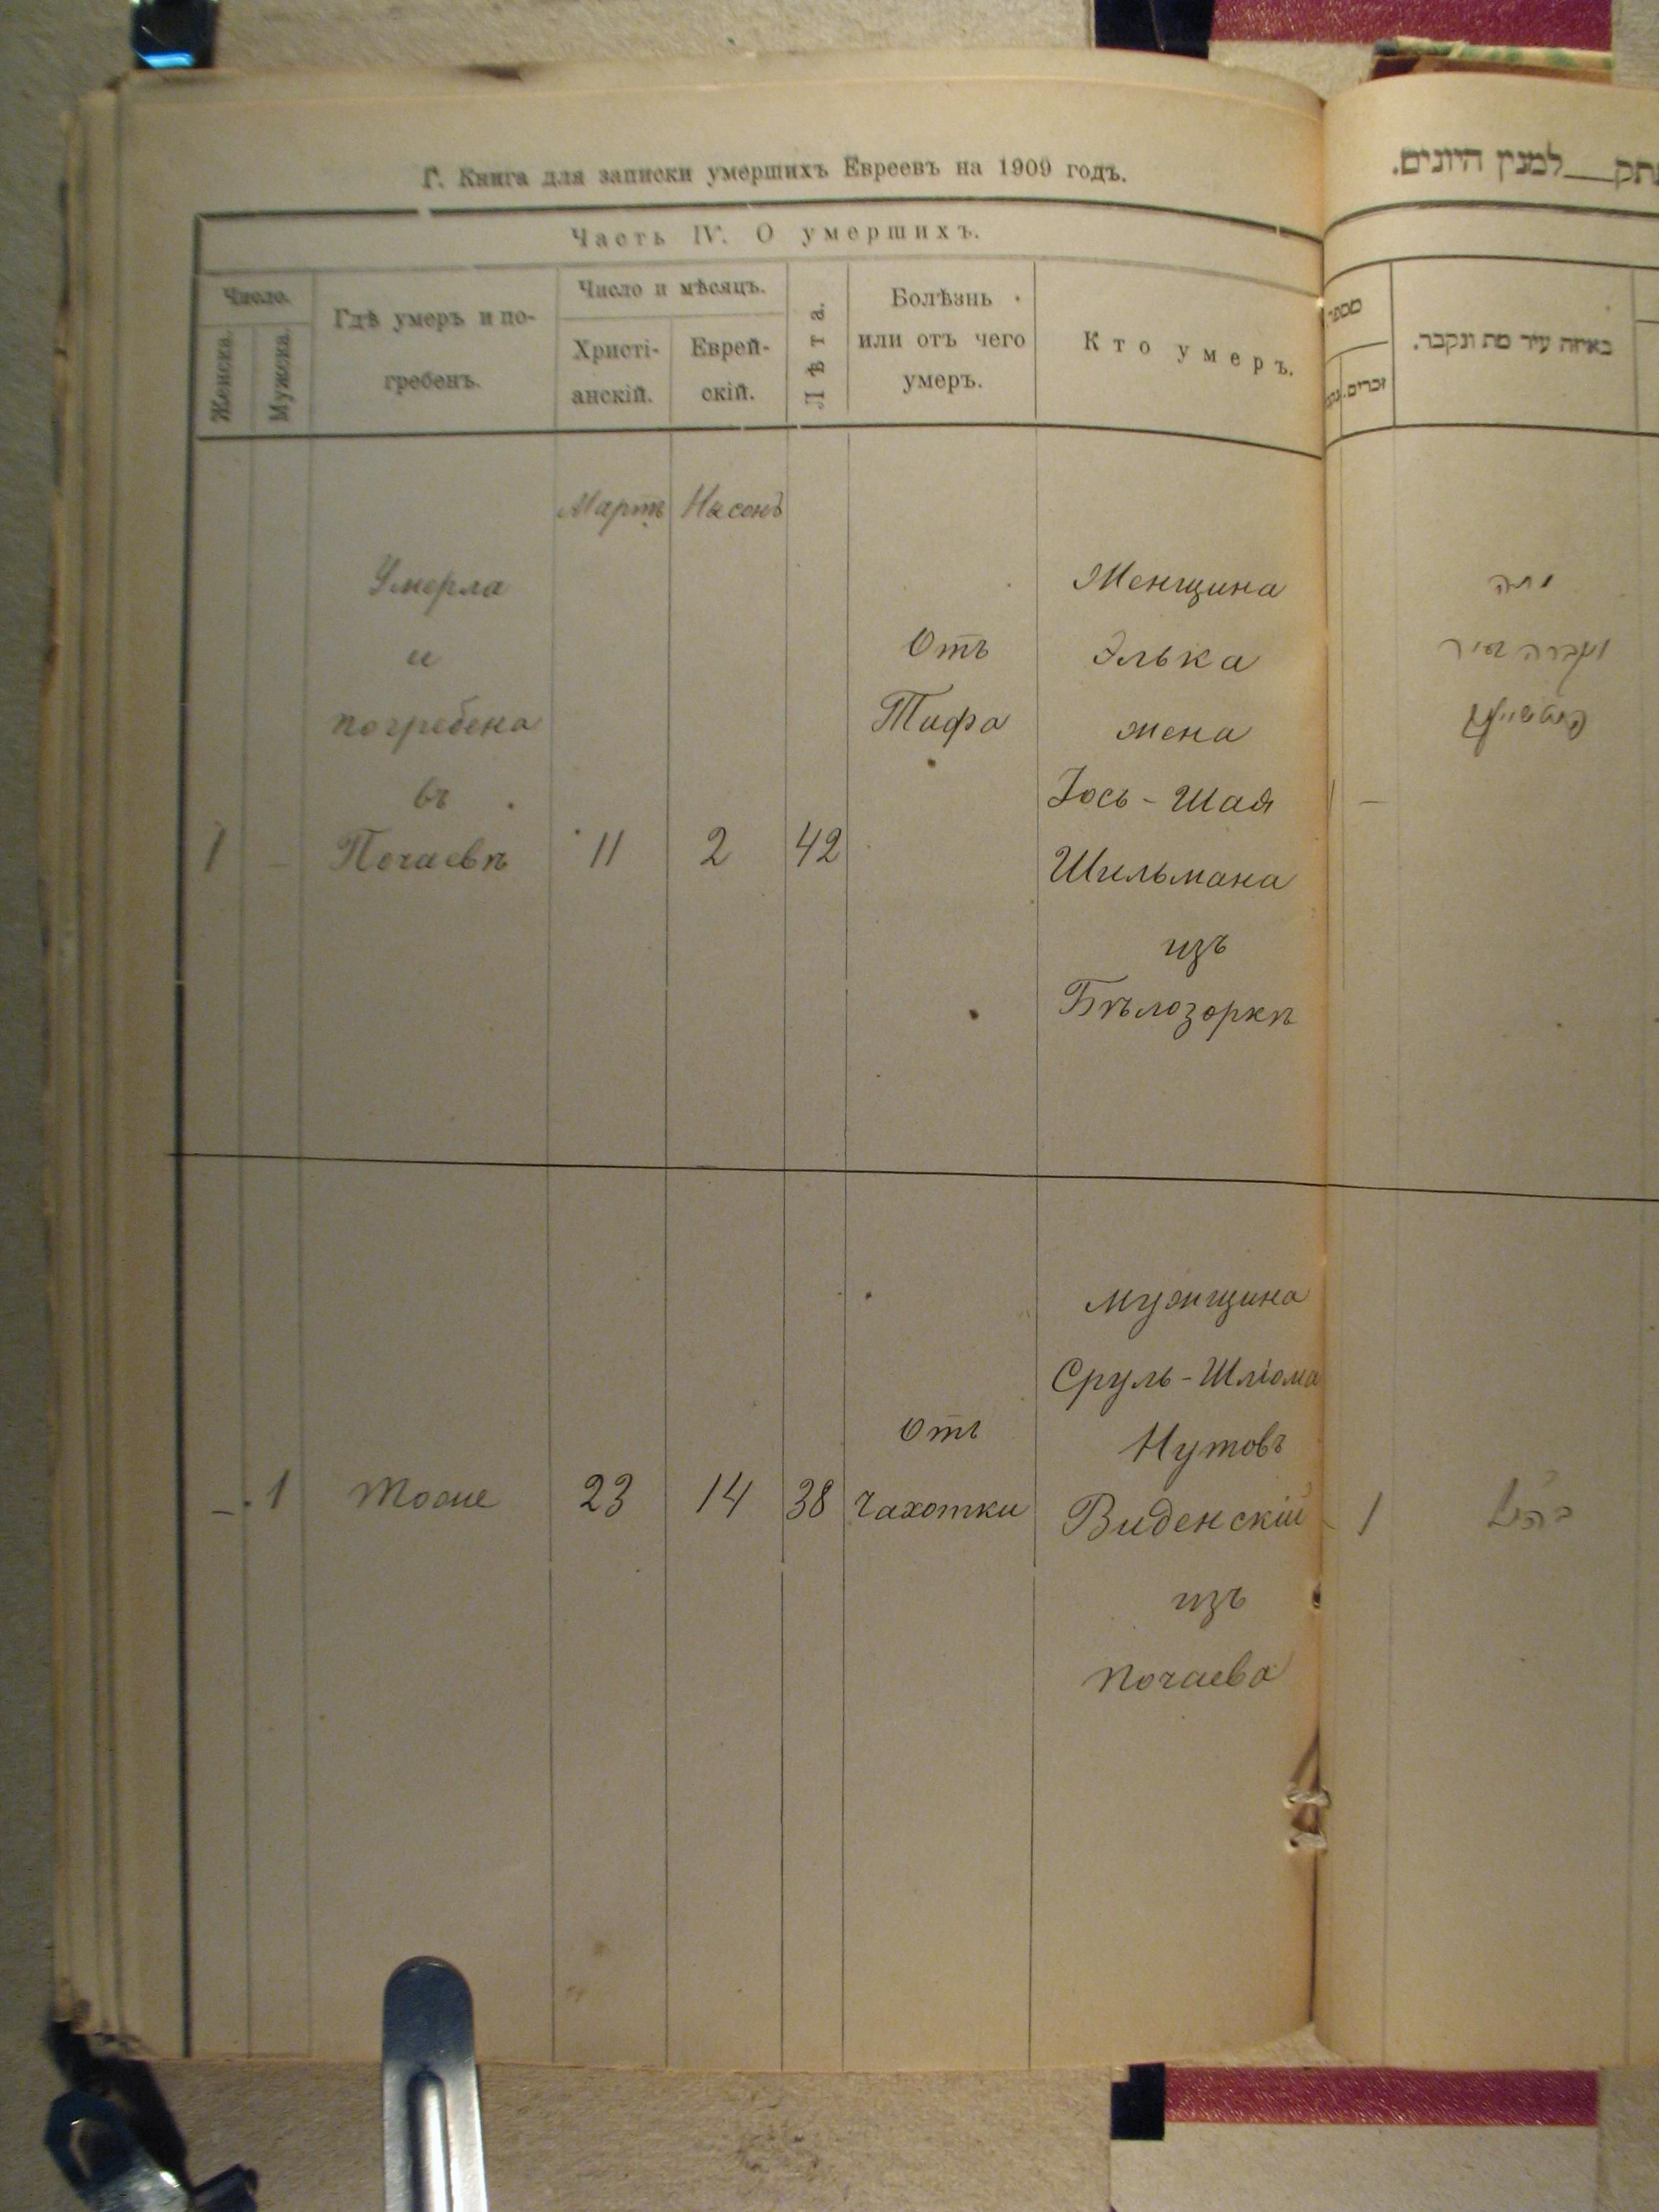 Г. Книга для записки умершихъ Евреевъ на 1909 годъ.
Часть IV. О умершихъ.
Число.
Женска.
Мужска.
Гдѣ умеръ и по-
гребенъ.
Число и мѣсяцъ.
Христі-
анскій.
Еврей-
скій.
Лѣта.
Болѣзнь
или отъ чего
умеръ.
Кто умеръ.
Мартъ
Умерла
и
погребена
въ
Почаевѣ
1 –
11
2
42
Отъ
Тифа
Женщина
Элька
жена
Іось-Шая
Шильмана
изъ
Бѣлозоркѣ
– 1
Тоже
23
14
38
Отъ
Чахотки
Мужщина
Сруль-Шлома
Нутовъ
Виденскій
изъ
Почаева
למנין היונים.
מספר
זכרים.
באיזה עיר מת ונקבר.
1 –
– 1